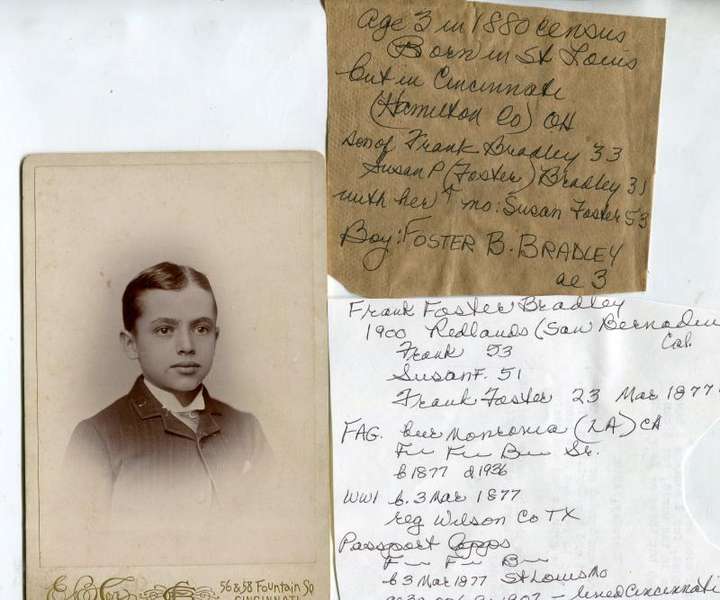 age 3 in 1880 census
Born in St Louis
but in Cincinnati
(Hamilton Co) OH
son of Frank Bradley 33
Susan P (Foster) Bradley 31
with her ↑ mo: Susan Foster 53
Boy: FOSTER B. BRADLEY
ae 3
Frank Foster Bradley
1900 Redlands (San Bernadin
Cal.
Frank 53
Susan F. 51
Frank Foster 23 Mar 1877
FAG. bur Monrovia (LA) CA
F— F— B— Sr.
b 1877 d 1936
WWI b. 3 Mar 1877
reg Wilson Co TX
Passport Apps
F— F— B—
b 3 Mar 1877 St Louis Mo
1907 - lived Cincinnati
56 & 58 Fountain Sq
CINCINNATI